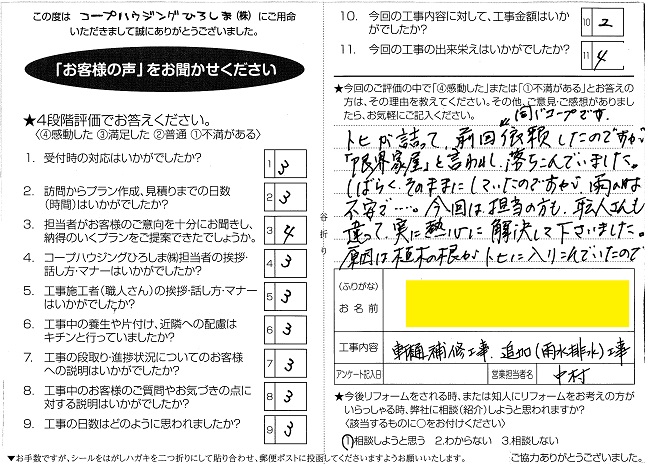 この度は コープハウジングひろしま(株) にご用命
いただきまして誠にありがとうございました。
「お客様の声」をお聞かせください
★4段階評価でお答えください。
〈④感動した ③満足した ②普通 ①不満がある〉
1. 受付時の対応はいかがでしたか? 1 3
2. 訪問からプラン作成、見積りまでの日数
(時間)はいかがでしたか? 2 3
3. 担当者がお客様のご意向を十分にお聞きし、
納得のいくプランをご提案できたでしょうか。 3 4
4. コープハウジングひろしま㈱担当者の挨拶・
話し方・マナーはいかがでしたか? 4 3
5. 工事施工者(職人さん)の挨拶・話し方・マナー
はいかがでしたか? 5 3
6. 工事中の養生や片付け、近隣への配慮は
キチンと行っていましたか? 6 3
7. 工事の段取り・進捗状況についてのお客様
への説明はいかがでしたか? 7 3
8. 工事中のお客様のご質問やお気づきの点に
対する説明はいかがでしたか? 8 3
9. 工事の日数はどのように思われましたか? 9 3
谷折り
10. 今回の工事内容に対して、工事金額はいか
がでしたか? 10 2
11. 今回の工事の出来栄えはいかがでしたか? 11 4
★今回のご評価の中で「④感動した」または「①不満がある」とお答えの
方は、その理由を教えてください。その他、ご意見・ご感想がありまし
たら、お気軽にご記入ください。
同じコープです。
トヒが詰って、前回依頼したのですが
「限界家屋」と言われ、落ちこんでいました。
しばらく、そのままにしていたのですが、雨の日は
不安で……。今回は、担当の方も、職人さんも
違って、実に熱心に解決して下さいました。
原因は植木の根がトヒに入りこんでいたので
(ふりがな)
お名前
工事内容 車輌補修工事. 追加(雨水排水)工事
アンケート記入日 営業担当者名 中村
★今後リフォームをされる時、または知人にリフォームをお考えの方が
いらっしゃる時、弊社に相談(紹介)しようと思われますか?
〈該当するものに○をお付けください〉
1.相談しようと思う 2.わからない 3.相談しない
▼お手数ですが、シールをはがしハガキを二つ折りにして貼り合わせ、郵便ポストに投函してくださいますようお願いいたします。 ご協力ありがとうございました。